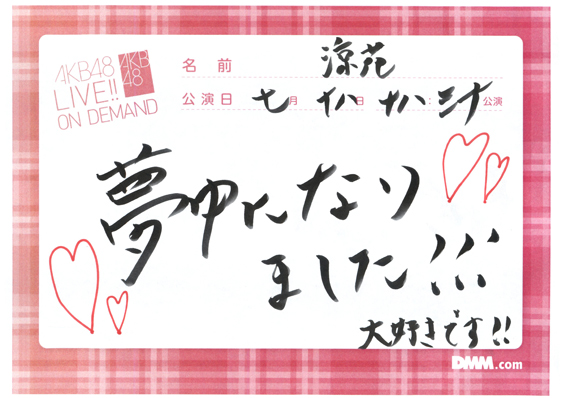 AKB48
LIVE!!
ON DEMAND
AKB
48
名前 涼花
公演日 七月 十八日 十八:三十公演
夢中になり
ました!!!
大好きです!!
DMM.com